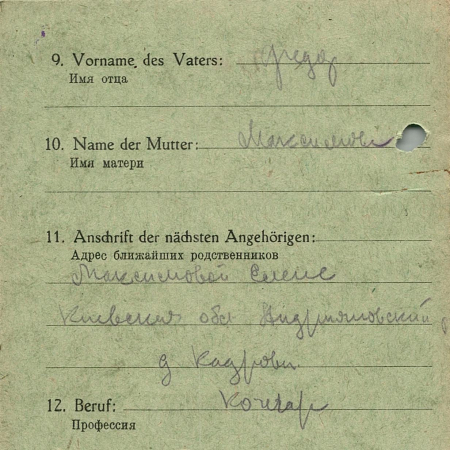 9. Vorname des Vaters: Федор
Имя отца
10. Name der Mutter: Максимова
Имя матери
11. Anschrift der nächsten Angehörigen:
Адрес ближайших родственников
Максимовой Елене
Киевская обл
д
12. Beruf: Кочегар
Профессия